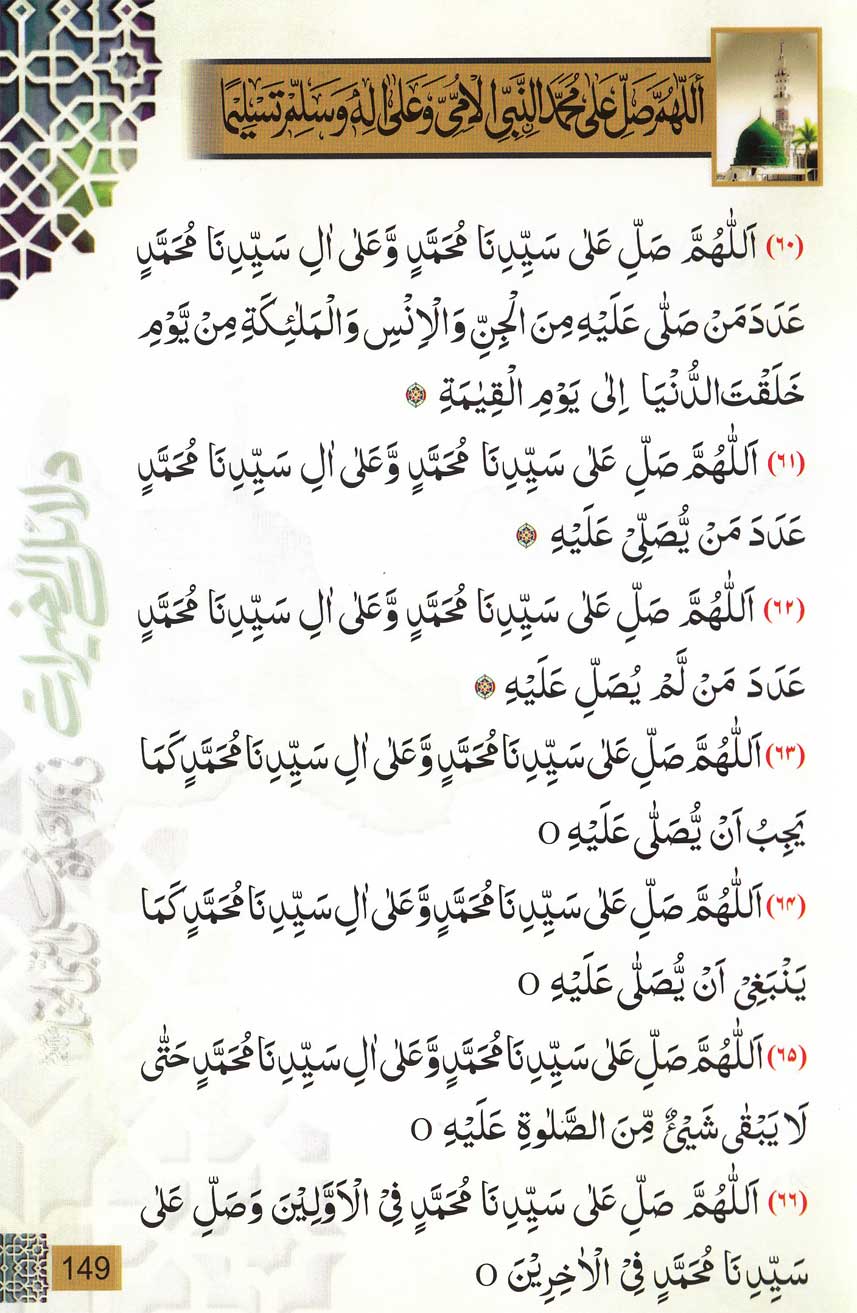 اَللّٰهُمَّ صَلِّ عَلٰی مُحَمَّدِ النَّبِيِّ الْاُمِّيِّ وَعَلٰی اٰلِهٖ وَسَلِّمْ تَسْلِيْمًا
(٦٠) اَللّٰهُمَّ صَلِّ عَلٰی سَيِّدِنَا مُحَمَّدٍ وَّعَلٰی اٰلِ سَيِّدِنَا مُحَمَّدٍ
عَدَدَ مَنْ صَلّٰی عَلَيْهِ مِنَ الْجِنِّ وَالْاِنْسِ وَالْمَلٰئِكَةِ مِنْ يَّوْمِ
خَلَقْتَ الدُّنْيَا اِلٰی يَوْمِ الْقِيٰمَةِ
(٦١) اَللّٰهُمَّ صَلِّ عَلٰی سَيِّدِنَا مُحَمَّدٍ وَّعَلٰی اٰلِ سَيِّدِنَا مُحَمَّدٍ
عَدَدَ مَنْ يُّصَلِّیْ عَلَيْهِ
(٦٢) اَللّٰهُمَّ صَلِّ عَلٰی سَيِّدِنَا مُحَمَّدٍ وَّعَلٰی اٰلِ سَيِّدِنَا مُحَمَّدٍ
عَدَدَ مَنْ لَّمْ يُصَلِّ عَلَيْهِ
(٦٣) اَللّٰهُمَّ صَلِّ عَلٰی سَيِّدِنَا مُحَمَّدٍ وَّعَلٰی اٰلِ سَيِّدِنَا مُحَمَّدٍ كَمَا
يَجِبُ اَنْ يُّصَلّٰی عَلَيْهِ ٥
(٦۴) اَللّٰهُمَّ صَلِّ عَلٰی سَيِّدِنَا مُحَمَّدٍ وَّعَلٰی اٰلِ سَيِّدِنَا مُحَمَّدٍ كَمَا
يَنْبَغِیْ اَنْ يُّصَلّٰی عَلَيْهِ ٥
(٦۵) اَللّٰهُمَّ صَلِّ عَلٰی سَيِّدِنَا مُحَمَّدٍ وَّعَلٰی اٰلِ سَيِّدِنَا مُحَمَّدٍ حَتّٰی
لَا يَبْقٰی شَیْئٌ مِّنَ الصَّلٰوةِ عَلَيْهِ ٥
(٦٦) اَللّٰهُمَّ صَلِّ عَلٰی سَيِّدِنَا مُحَمَّدٍ فِی الْاَوَّلِيْنَ وَصَلِّ عَلٰی
سَيِّدِنَا مُحَمَّدٍ فِی الْاٰخِرِيْنَ ٥
دلائل الخیرات
149